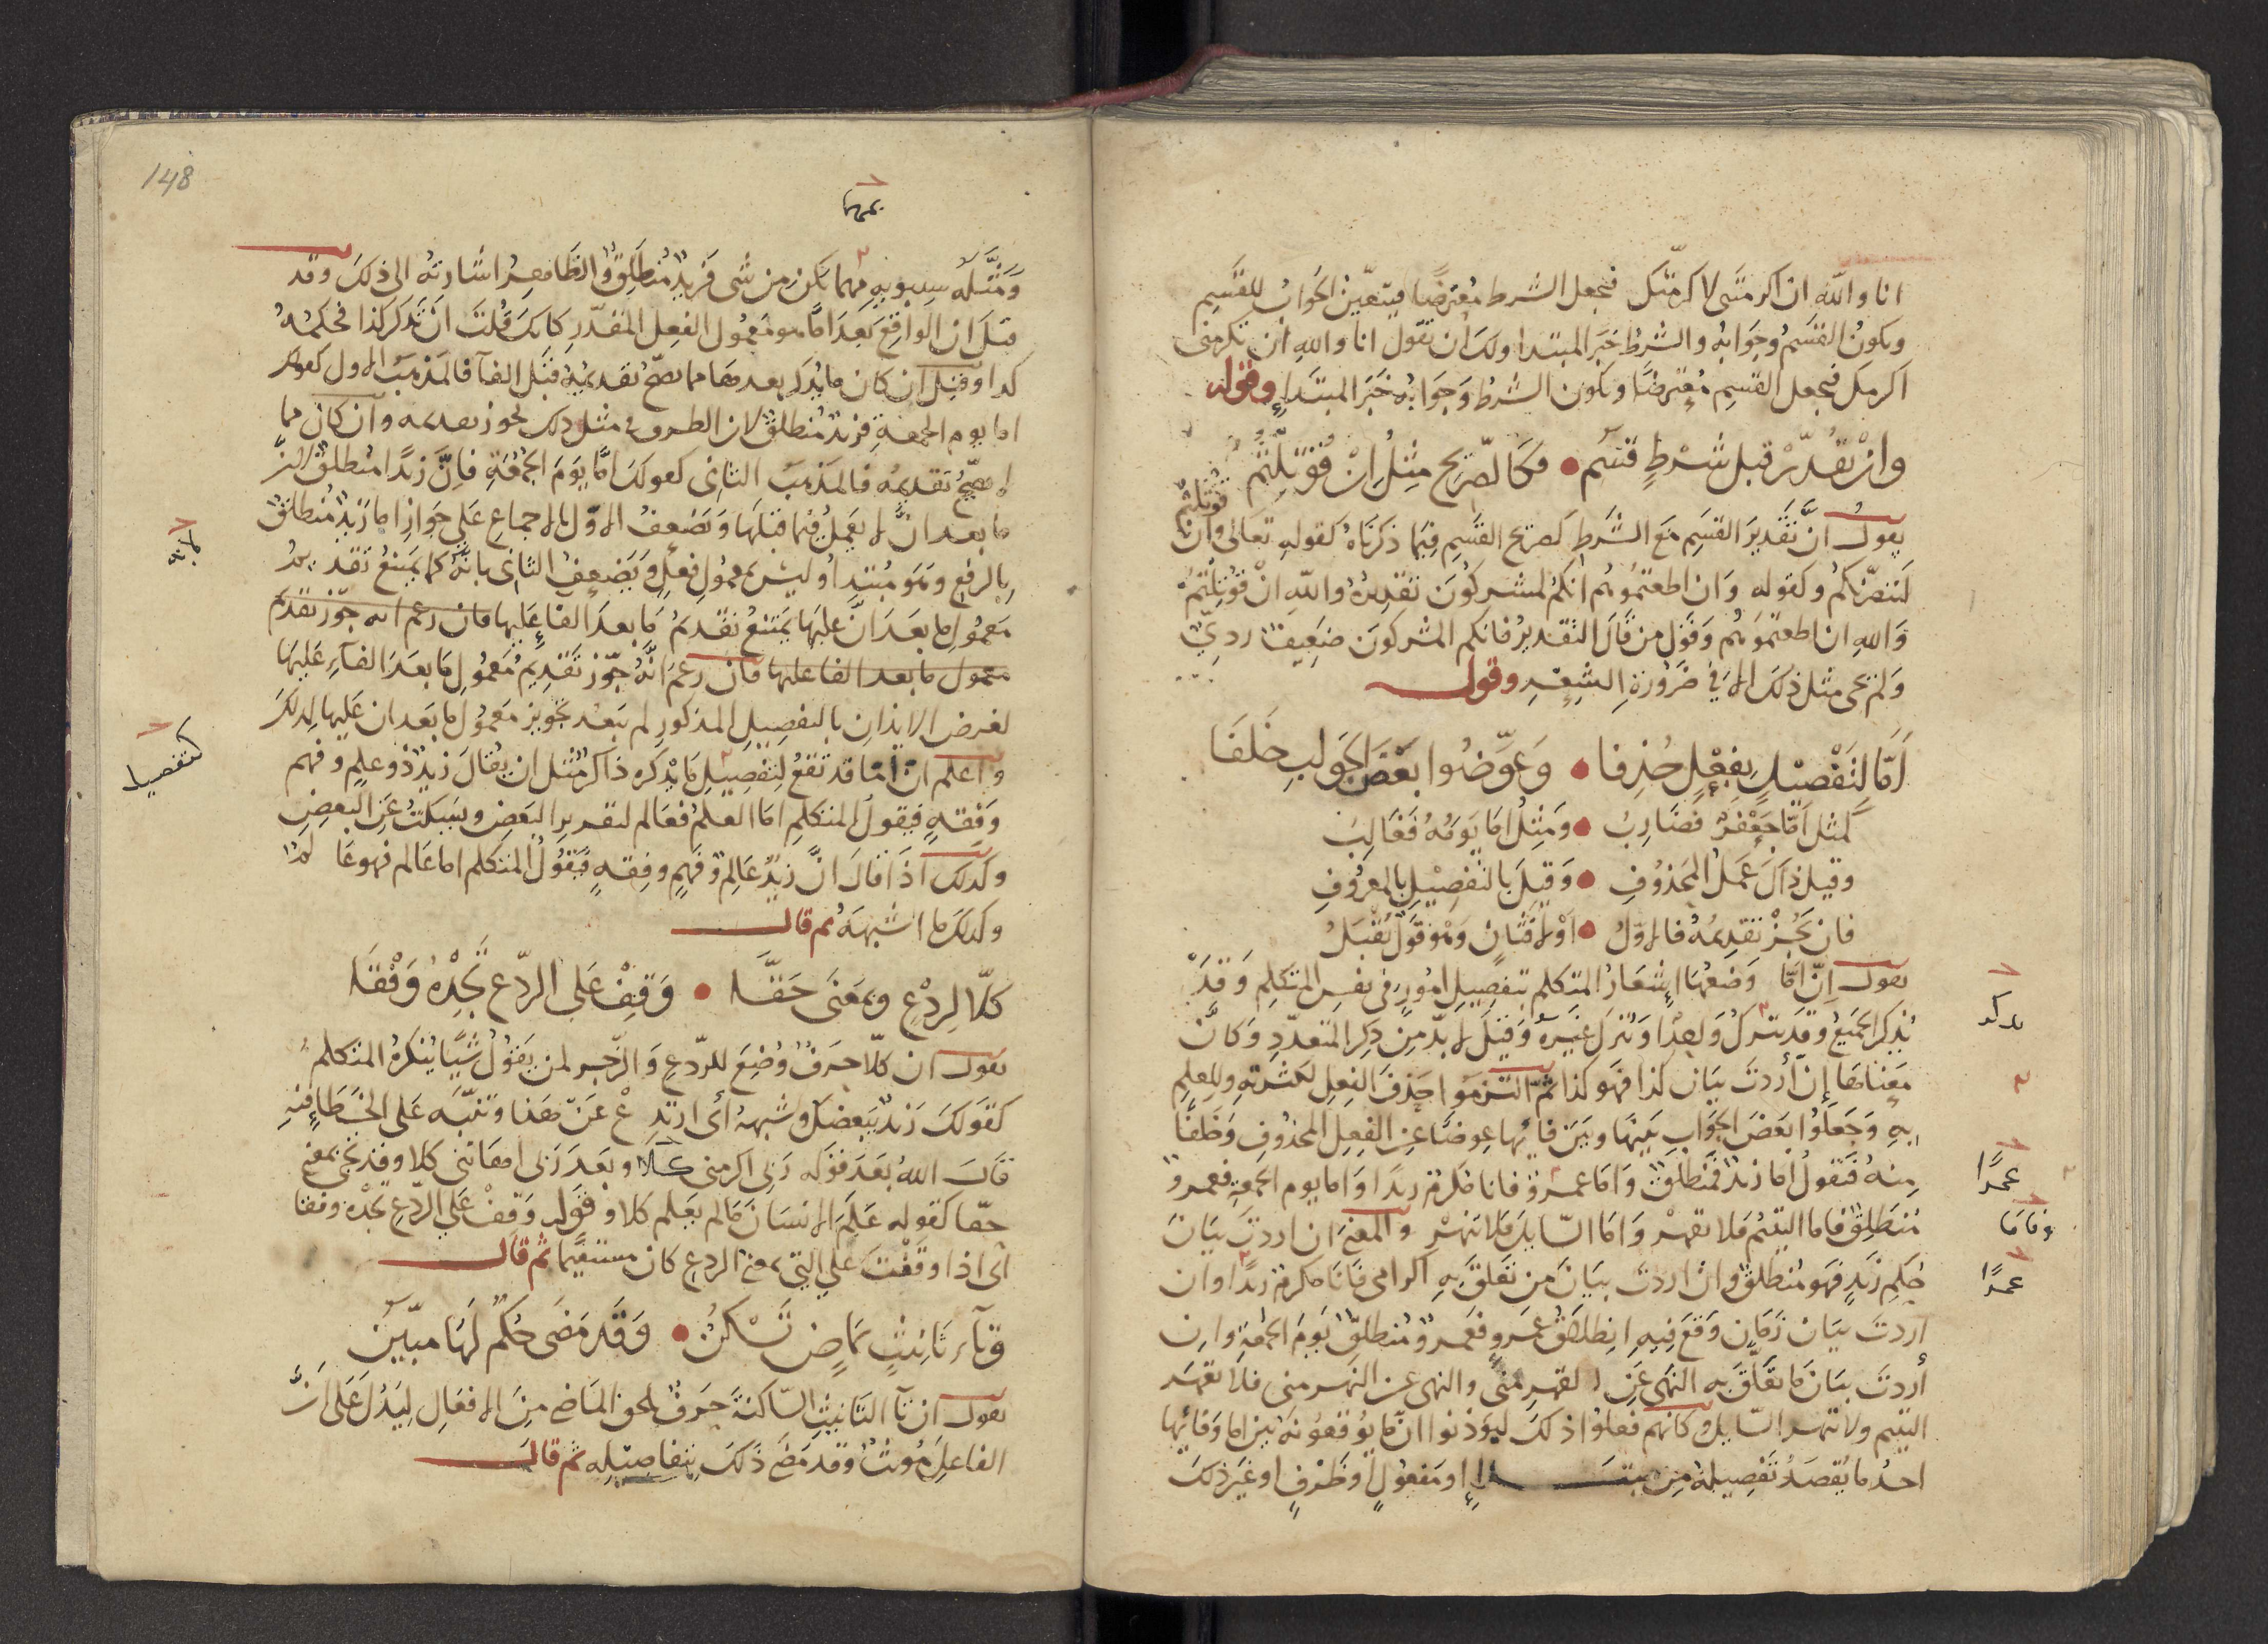 انا والله ان اكرمتنى لاكرمتك فتجعل الشرط معترضًا فيتعين الجواب للقسم
ويكون القسم وجوابه والشرط خبر المبتدا ولك ان تقول انا والله ان تكرمنى
اكرمك فتجعل القسم معترضًا ويكون الشرط وجوابه خبر المبتدإ وقوله
وان تقدّر قبل شرطٍ قسم • فكالصّريح مثل ان قوتلتم
يقول ان تقدير القسم مع الشرط كصريح القسم فيما ذكرناه كقوله تعالى وان قوتلتم
لننصرنكم وكقوله وان اطعتموهم انكم لمشركون تقديره والله ان قوتلتم
والله ان اطعتموهم وقول من قال التقدير فانكم المشركون ضعيف ردىّ
ولم يجى مثل ذلك الا فى ضرورة الشعر وقولـــه
اَمّا لتفصيل بفعل حذفا • وعوّضوا بعض الجواب خلفا
كمثل امّا جعفر فضارب • ومثل اما يومه فغالب
وقيل ذاك عمل المحذوف • وقيل بالتفصيل بالمعروف
فان يجز تقديمه فالاوّل • اولا فثان وهو قول يقبل
يقول انّ امّا وضعها اشعار المتكلم بتفصيل امور فى نفس المتكلم وقد
يذكر الجميع وقد يترك واحدًا وترك غيره وقيل لا بدّ من ذكر المتعدد وكان
معناها إن أردت بيان كذا فهو كذا ثم التزموا حذف الفعل لكثرته وللعلم
به وجعلوا بعض الجواب بينها وبين فائها عوضًا عن الفعل المحذوف وخلفًا
منه فتقول اما زيد فمنطلق واما عمرو فانا مكرم زيدا واما يوم الجمعة فعمرو
منطلق فاما اليتيم فلا تقهر واما السائل فلا تنهر والمعنى ان اردت بيان
حكم زيد فهو منطلق وان اردت بيان من تعلق به اكرامى فانا مكرم زيدًا وان
اردت بيان زمان وقع فيه انطلاق عمرو فعمرو منطلق يوم الجمعة وان
أردت بيان ما تعلق به النهى عن القهر منى والنهى عن النهر منى فلا تقهر
اليتيم ولا تنهر السايل وكانهم فعلوا ذلك ليوذنوا ان ما يوقعونه بين اما وفائها
احد ما يقصد تفصيله من مبتــدإ او مفعول او ظرف او غير ذلك
يذكر
عمرًا
وفاما
عمرًا
148
بمهما
ومثّله سيبويه مهما يكن من شى فزيد منطلق والظاهر اشارته الى ذلك وقد
قيل ان الواقع بعد امّا هو معمول الفعل المقدّر كانك قلت ان تذكر كذا فحكمه
كذا وقيل ان كان ما يذكر بعدها مما يصح تقديمه قبل الفآ فالمذهب الاول كقولك
اما يوم الجمعة فزيد منطلق لان الظرف فى مثل ذلك يجوز تقديمه وان كان مما
لا يصح تقديمه فالمذهب الثانى كقولك امّا يوم الجمعة فانّ زيدًا منطلق لانّ
ما بعد انّ لا يعمل فيما قبلها ويضعف الاوّل بالاجماع على جواز اما زيد منطلق
بالرفع وهو مبتدا وليس بمعمول فعل ويضعف الثانى بانه كما يمتنع تقديم
معمول ما بعد انّ عليها يمتنع تقديم ما بعد الفاء عليها فان زعم انه جوّز تقديم
معمول ما بعد الفا عليها فان زعم انّه جوّز تقديم معمول ما بعد الفاء عليها
لغرض الايذان بالتفصيل المذكور لم يبعد تجويز معمول ما بعد ان عليها لذلك
واعلم ان امّا قد تقع لتفصيل ما يذكره ذاكر مثل ان يقال زيد ذو علم وفهم
وفقه فيقول المتكلم اما العلم فعالم لتقرير البعض ويسكت عن البعض
وكذلك اذا قال ان زيد عالم وفهم وفقه فيقول المتكلم اما عالم فهو عالم
وكذلك ما اشبهه ثم قالـــ
كلّا لردعٍ وبمعنى حقّــا • وقف على الرّدع تجده وفقا
يقول ان كلّا حرف وضع للردع والزجر لمن يقول شيًا ينكره المتكلم
كقولك زيد يبغضك وشبهه أى ارتدع عن هذا وتنبّه على الخطإ فيه
قال الله بعد قوله ربى اكرمنى كلّا وبعد ربى اهاننى كلا وقد تجى بمعنى
حقّا كقوله علم الانسان ما لم يعلم كلا وقوله وقف على الردع تجده وفقا
اى اذا وقفت على التى بمعنى الردع كان مستقيمًا ثم قالـــ
وتاء تانيثٍ بماضٍ تسكن • وقد مضى حكم لها مبيّن
يقول ان تآ التانيث السّاكنة حرف يلحق الماضى من الافعال ليدل على انّ
الفاعل مونث وقد مضى ذلك بتفاصيله ثم قالـــ
لانه
كتفصيل